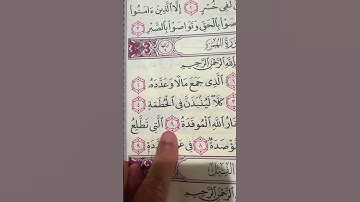 لَفِى خُسْرٍ ٢ إِلَّا ٱلَّذِينَ ءَامَنُوا۟
صَوْا۟ بِٱلْحَقِّ وَتَوَاصَوْا۟ بِٱلصَّبْرِ ٣
سُورَةُ الهُمَزَةِ
ٱللَّهِ ٱلرَّحْمَٰنِ ٱلرَّحِيمِ
ٱلَّذِى جَمَعَ مَالًا وَعَدَّدَهُۥ
كَلَّا لَيُنۢبَذَنَّ فِى ٱلْحُطَمَةِ
نَارُ ٱللَّهِ ٱلْمُوقَدَةُ ٦ ٱلَّتِى تَطَّلِعُ
مُّؤْصَدَةٌ ٨ فِى
الفِيلِ
ٱلرَّحْمَٰنِ ٱلرَّحِيمِ